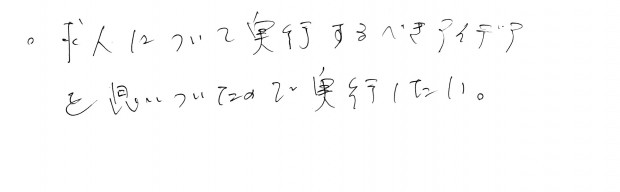 。求人について実行するべきアイデア
を思いついたので実行したい。